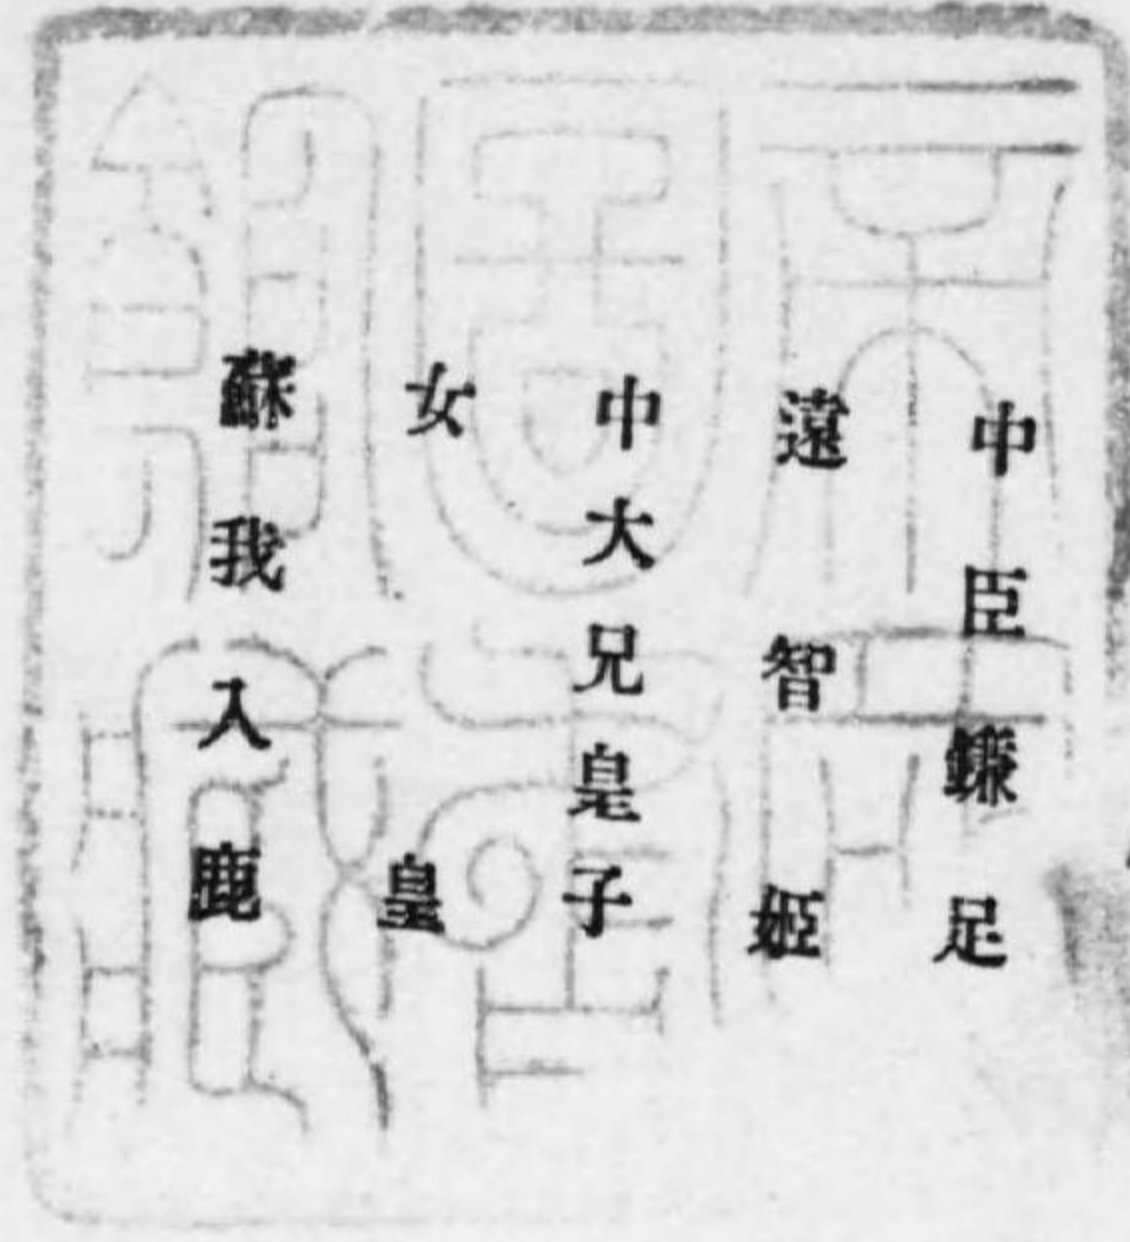 中臣鎌足
遠智姫
中大兄皇子
女皇
蘇我入鹿